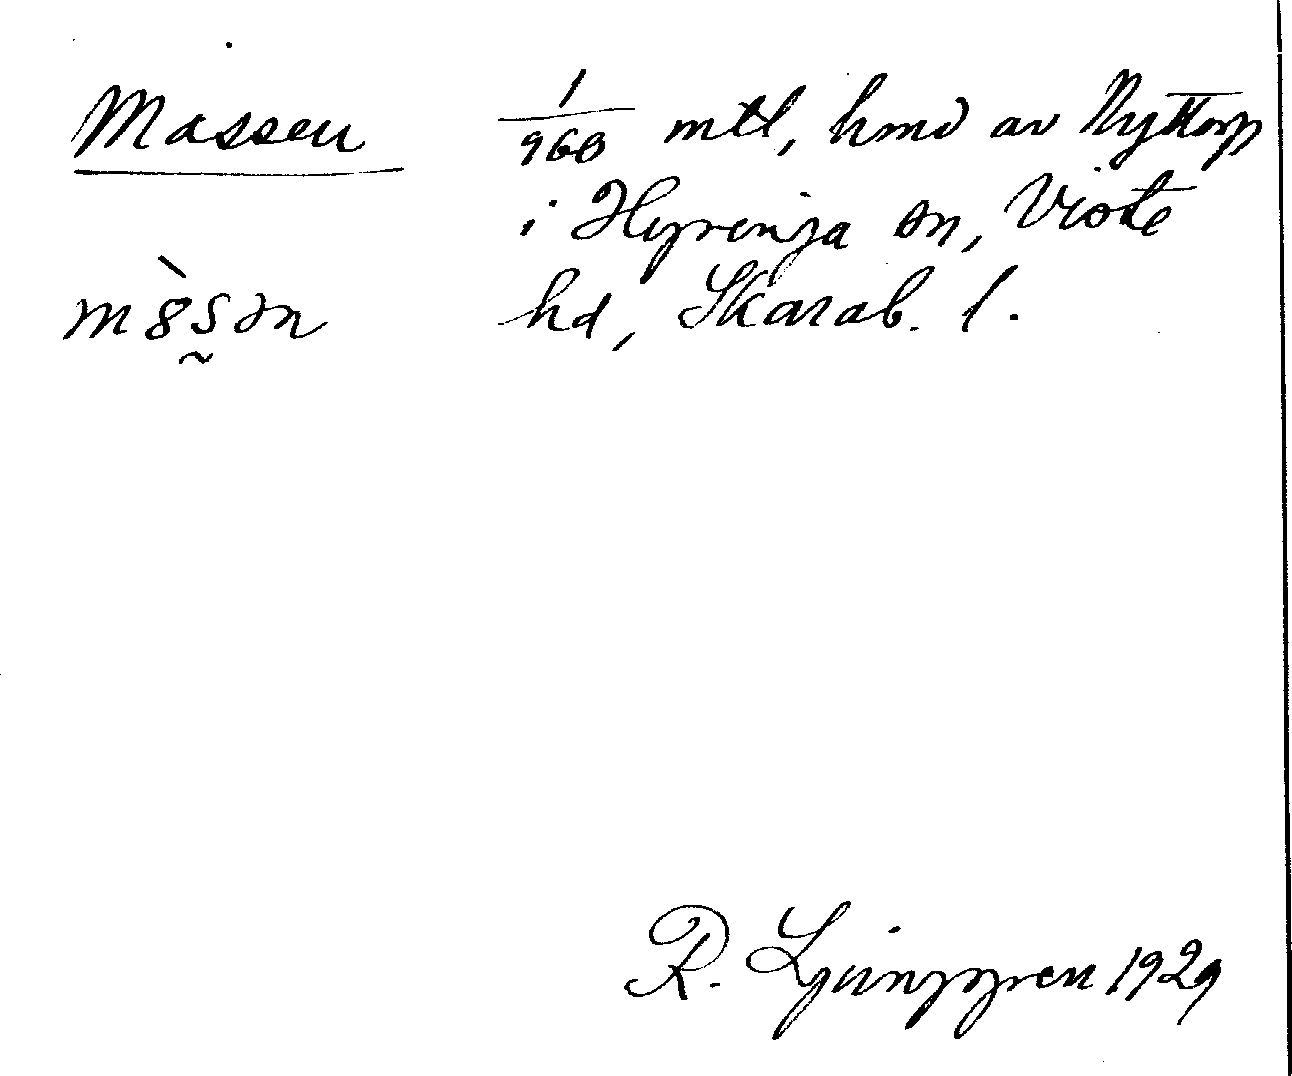 Massen
1/960 mtl, hmd av Nyttorp
i Hyrenja sn, Viste
hd, Skarab. l.
R. Ljunggren 1929